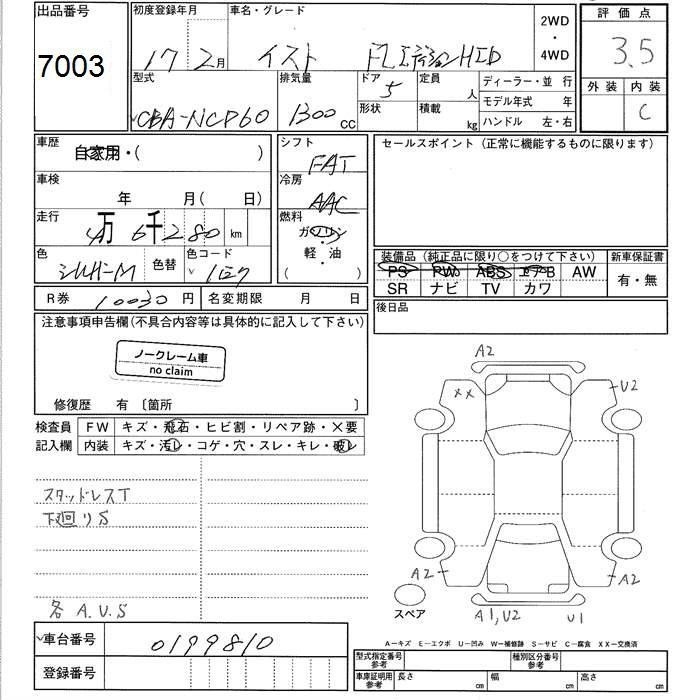 出品番号 初度登録年月 車名・グレード 2WD・4WD 評価点
7003 17 2月 イスト FLエディションHID 3.5
型式 排気量 ドア 5 定員 人 ディーラー・並行 外装 内装
CBA-NCP60 1300 cc 形状 積載 kg モデル年式 年 C
ハンドル 左・右
車歴 自家用・( ) シフト FAT セールスポイント(正常に機能するものに限ります)
車検 年 月( 日) 冷房 AAC
走行 4万6千280 km 燃料 ガソリン
色 シルバーM 色替 色コード 1E7 (軽・油)
装備品(純正品に限り○をつけて下さい) 新車保証書
PS PW ABS エアB AW 有・無
SR ナビ TV カワ
R券 10030円 名変期限 月 日 後日品
注意事項申告欄(不具合内容等は具体的に記入して下さい)
ノークレーム車
no claim
修復歴 有 〔箇所 〕
検査員 FW キズ・飛石・ヒビ割・リペア跡・×要
記入欄 内装 キズ・汚レ・コゲ・穴・スレ・キレ・破レ
スタッドレスT
下廻りS
各 A.U.S
A2
XX U2
A2 A2
スペア A1,U2 U1
A-キズ E-エクボ U-凹み W-補修跡 S-サビ C-腐食 XX-交換済
車台番号 0199810
登録番号
型式指定番号 参考 種別区分番号 参考
車庫証明用 参考 長さ cm 幅 cm 高さ cm